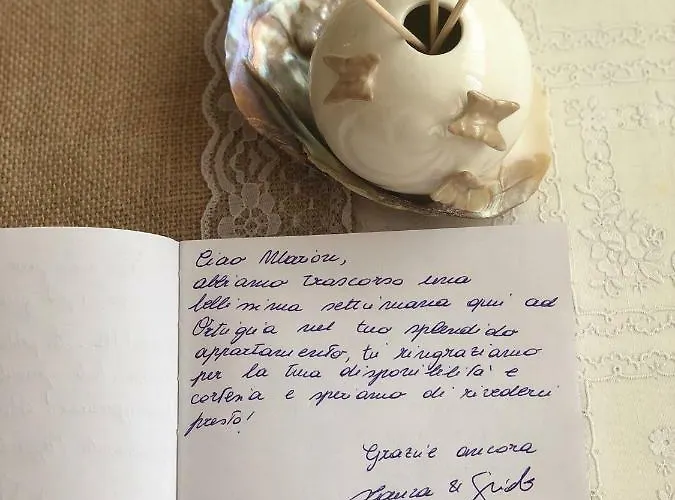 Ciao Marion,
abbiamo trascorso una
bellissima settimana qui ad
Ortigia nel tuo splendido
appartamento, ti ringraziamo
per la tua disponibilità e
cortesia e speriamo di rivederci
presto!
Grazie ancora
& Guido